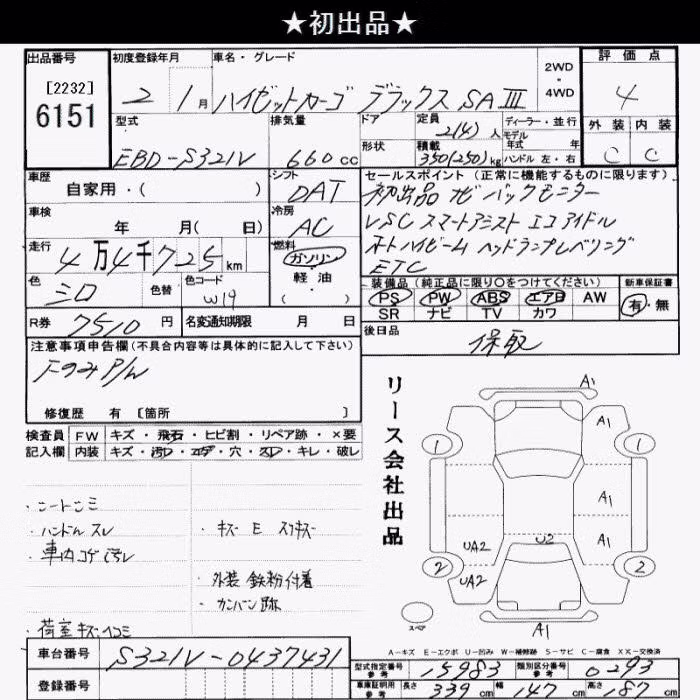 ★初出品★
出品番号
[2232]
6151
初度登録年月
2 1月
車名・グレード
ハイゼットカーゴ デラックス SAⅢ
2WD
・
4WD
評価点
4
外装 内装
C C
型式
EBD-S321V
排気量
660cc
ドア
形状
定員
2(4)人
積載
350(250)kg
ディーラー・並行
モデル
年式 年
ハンドル 左・右
車歴
自家用・( )
シフト
DAT
車検
年 月( 日)
冷房
AC
走行
4万4千725km
燃料
ガソリン
軽油
・
( )
色
シロ
色替
色コード
W19
R券
7510円
名変通知期限 月 日
セールスポイント(正常に機能するものに限ります)
初出品 ナビ バックモニター
VSC スマートアシスト エコアイドル
オートハイビーム ヘッドランプレベリング
ETC
装備品(純正品に限り○をつけてください)
PS PW ABS エアB AW
SR ナビ TV カワ
新車保証書
有・無
後日品
保取
注意事項申告欄(不具合内容等は具体的に記入して下さい)
FのみP/W
修復歴 有 [箇所 ]
検査員
記入欄
FW キズ・飛石・ヒビ割・リペア跡・×要
内装 キズ・汚レ・コゲ・穴・スレ・キレ・破レ
・シートシミ
・ハンドルスレ
・車内コゲ汚レ
・荷室キズヘコミ
・キズ E スリキズ
・外装鉄粉付着
・カンバン跡
リース会社出品
A1
A1
1 1
A1
UA2 U2 A1
2 2
UA2
スペア
A1
A-キズ E-エクボ U-凹み W-補修跡 S-サビ C-腐食 XX-交換済
車台番号
S321V-0437431
登録番号
型式指定番号
参考
15983
類別区分番号
参考
0293
車庫証明用
参考
長さ 339cm 幅 147cm 高さ 187cm